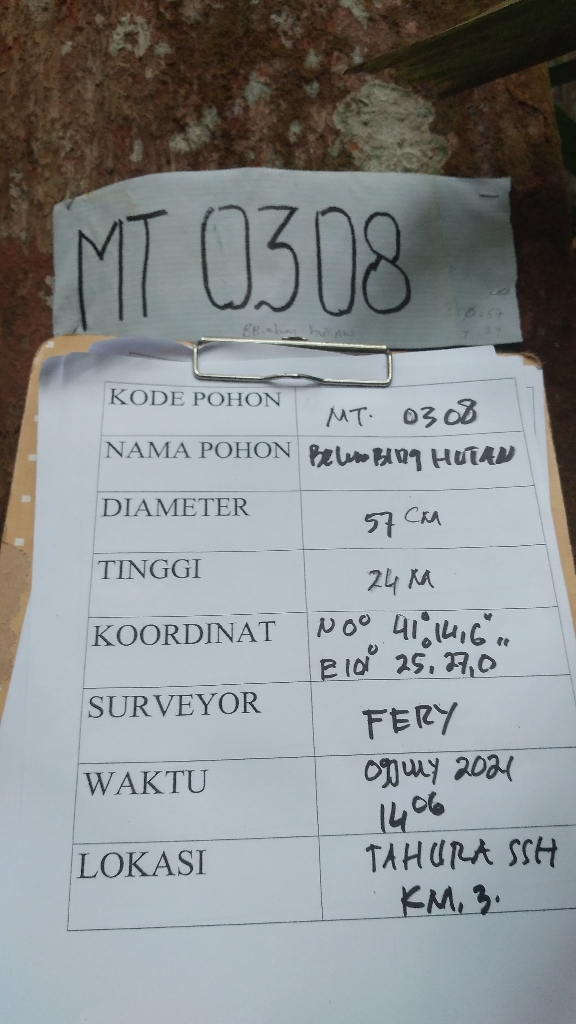 MT 0308
KODE POHON MT. 0308
NAMA POHON BelimBing HUTAN
DIAMETER 57 CM
TINGGI 24 M
KOORDINAT N 0° 41° 14,6"
E 101° 25. 27,0
SURVEYOR FERY
WAKTU July 2021
14 06
LOKASI TAHURA SSH
KM. 3.